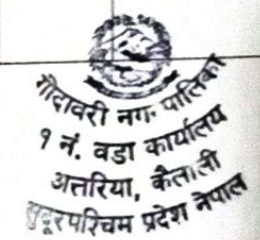 गोदावरी नग. पालिका
१ नं. वडा कार्यालय
अत्तरिया, कैलाली
सुदूरपश्चिम प्रदेश नेपाल